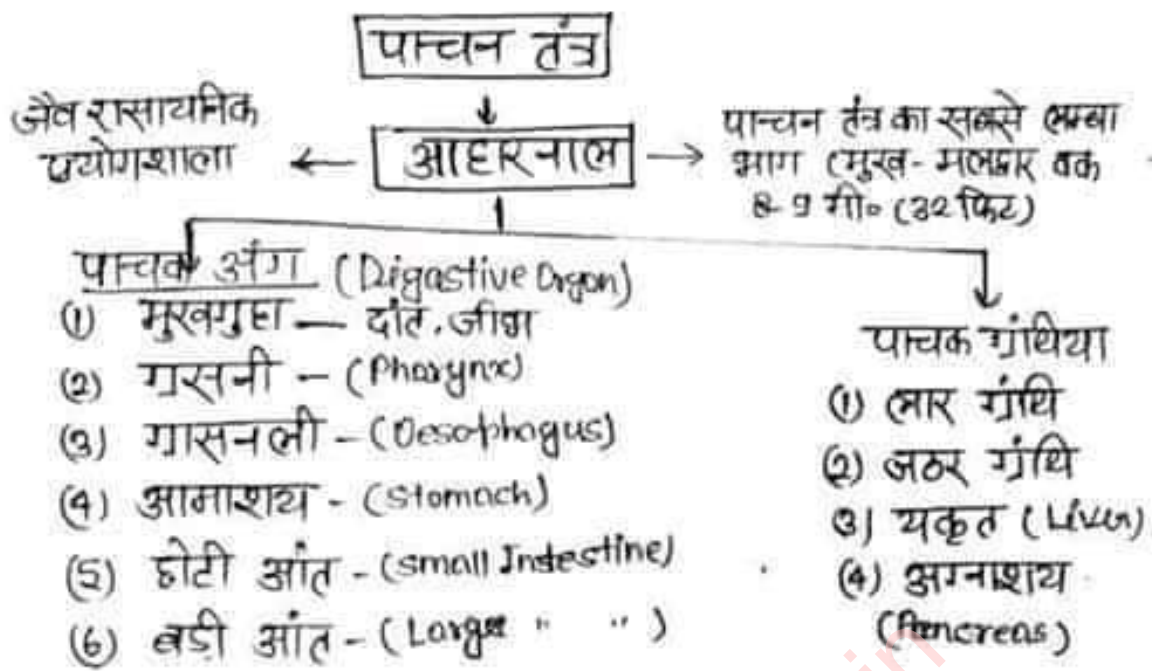 पाचन तंत्र
जैव रासायनिक
प्रयोगशाला
आहारनाल
पाचन तंत्र का सबसे लम्बा
भाग (मुख - मलद्वार तक
8-9 मी० (32 फिट)
पाचक अंग (Digastive Organ)
(1) मुखगुहा — दांत, जीभ
(2) ग्रसनी - (Pharynx)
(3) ग्रासनली - (Oesophagus)
(4) आमाशय - (Stomach)
(5) छोटी आंत - (Small Indestine)
(6) बड़ी आंत - (Large " " )
पाचक ग्रंथिया
(1) लार ग्रंथि
(2) जठर ग्रंथि
(3) यकृत (Liver)
(4) अग्नाशय
(Pancreas)
in